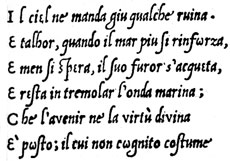 I l ciel ne manda giu qualche ruina.
E talhor, quando il mar piu si rinforza,
E men si spera, il suo furor s'acqueta,
E resta in tremolar l'onda marina;
Che l'avenir ne la virtù divina
E' posto; il cui non cognito costume